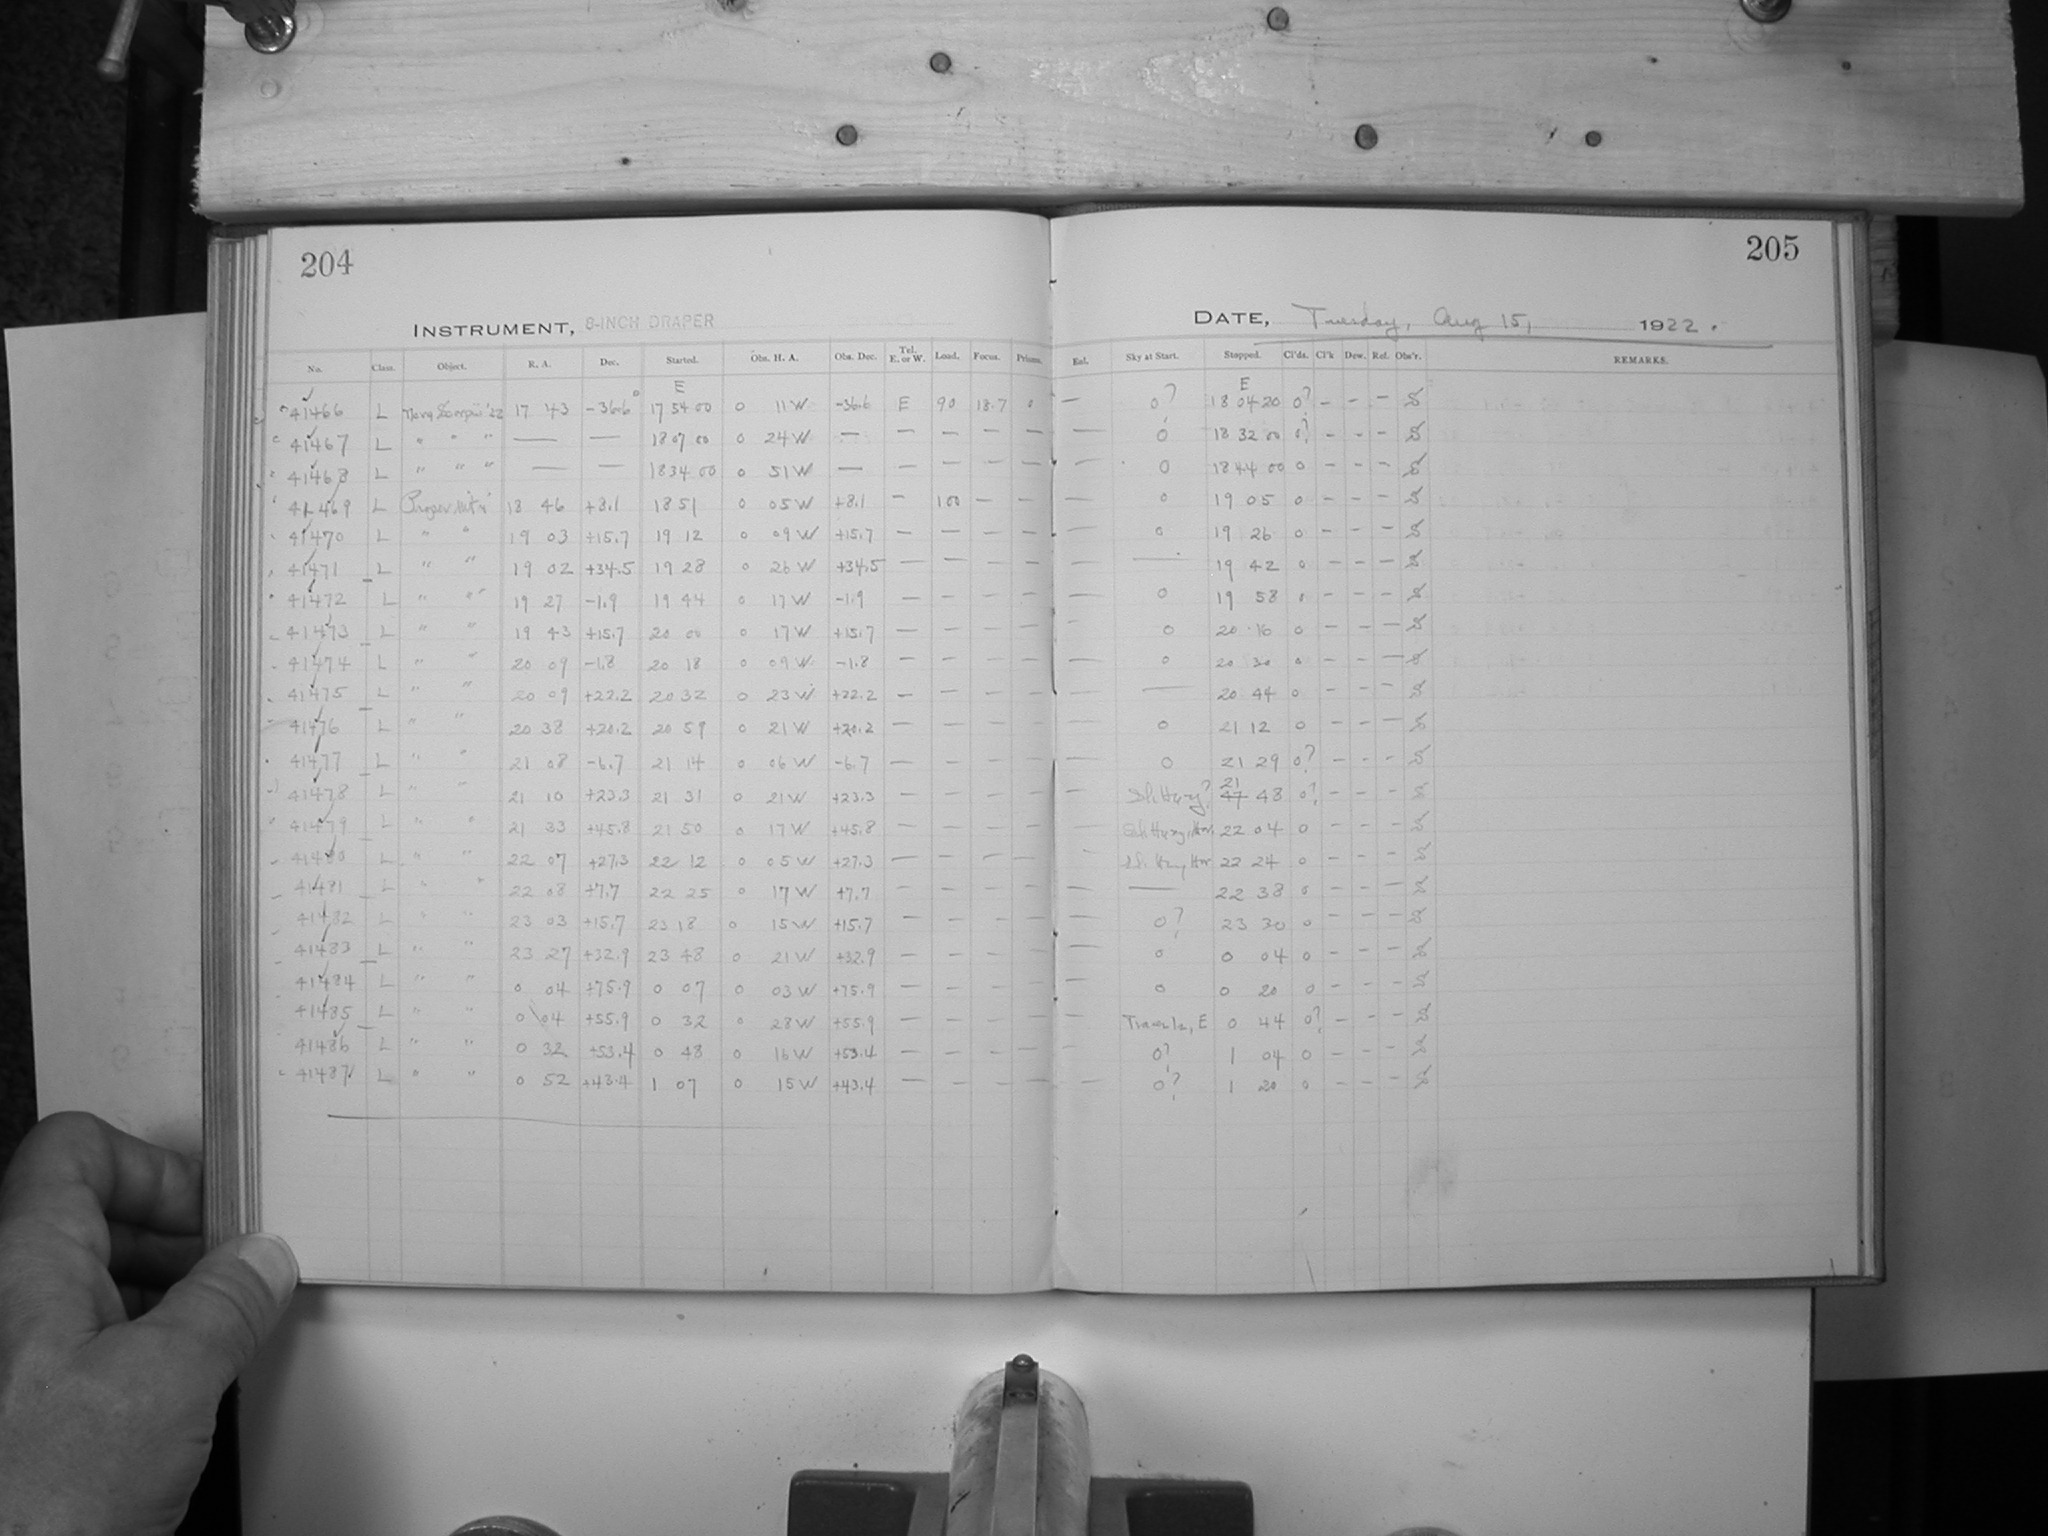 204
205
INSTRUMENT, 8-INCH DRAPER
DATE, Tuesday, Aug 15, 1922.
No. Class. Object. R. A. Dec. Started. Obs. H. A. Obs. Dec. Tel. E. or W. Load. Focus. Prisms. Eol. Sky at Start. Stopped. Cl'ds. Cl'k Dew. Rel. Obs'r. REMARKS.
E E
41466 L Nova Scorpii '22 17 43 -36.6° 17 54 00 0 11 W -36.6 E 90 18.7 0 — 0? 18 04 20 0? - - -
41467 L " " " — — 18 07 00 0 24 W — — — — — — 0 18 32 00 0? - - -
41468 L " " " — — 18 34 00 0 51 W — — — — — — 0 18 44 00 0 - - -
41469 L 18 46 +8.1 18 51 0 05 W +8.1 - 100 - - — 0 19 05 0 - - -
41470 L " " 19 03 +15.7 19 12 0 09 W +15.7 — — — — — 0 19 26 0 - - -
41471 L " " 19 02 +34.5 19 28 0 26 W +34.5 — — — — — — 19 42 0 - - -
41472 L " " 19 27 -1.9 19 44 0 17 W -1.9 — — — — — 0 19 58 0 - - -
41473 L " " 19 43 +15.7 20 00 0 17 W +15.7 — — — — - 0 20 16 0 - - -
41474 L " " 20 09 -1.8 20 18 0 09 W -1.8 — — — — — 0 20 30 0 - - -
41475 L " " 20 09 +22.2 20 32 0 23 W +22.2 — — — — — — 20 44 0 - - -
41476 L " " 20 38 +20.2 20 59 0 21 W +20.2 — — — — — 0 21 12 0 - - -
41477 L " " 21 08 -6.7 21 14 0 06 W -6.7 — — — — — 0 21 29 0? - - -
41478 L " " 21 10 +23.3 21 31 0 21 W +23.3 — — — — — Sl. Hazy? 21 48 0? - - -
41479 L " " 21 33 +45.8 21 50 0 17 W +45.8 — — — — — Sl. Hazy, Hor. 22 04 0 - - -
41480 L " " 22 07 +27.3 22 12 0 05 W +27.3 — — — — - Sl. Hazy Hor 22 24 0 - - -
41481 L " " 22 08 +7.7 22 25 0 17 W +7.7 — — — — — — 22 38 0 - - -
41482 L " " 23 03 +15.7 23 18 0 15 W +15.7 — — — — — 0? 23 30 0 - - -
41483 L " " 23 27 +32.9 23 48 0 21 W +32.9 — — — — — 0 0 04 0 - - -
41484 L " " 0 04 +75.9 0 07 0 03 W +75.9 — — — — — 0 0 20 0 - - -
41485 L " " 0 04 +55.9 0 32 0 28 W +55.9 — — — — — E 0 44 0? - - -
41486 L " " 0 32 +53.4 0 48 0 16 W +53.4 — — — — - 0? 1 04 0 - - -
41487 L " " 0 52 +43.4 1 07 0 15 W +43.4 — — — — — 0? 1 20 0 - - -